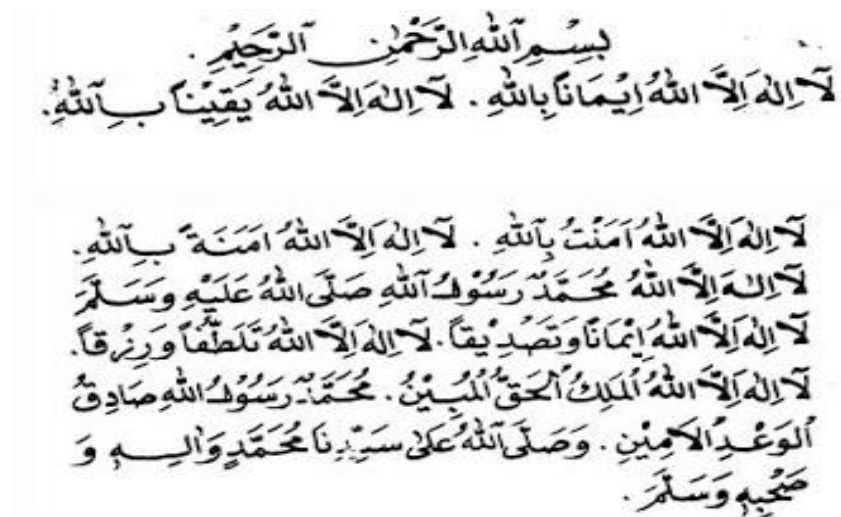 بِسْمِ اللهِ الرَّحْمٰنِ الرَّحِيْمِ .
لَآ اِلٰهَ اِلَّا اللهُ اِيْمَانًا بِاللهِ . لَآ اِلٰهَ اِلَّا اللهُ يَقِيْنًا بِاللهِ.
لَآ اِلٰهَ اِلَّا اللهُ اٰمَنْتُ بِاللهِ . لَآ اِلٰهَ اِلَّا اللهُ اَمَنَةً بِاللهِ.
لَآ اِلٰهَ اِلَّا اللهُ مُحَمَّدٌ رَسُوْلُ اللهِ صَلَّى اللهُ عَلَيْهِ وَسَلَّمَ
لَآ اِلٰهَ اِلَّا اللهُ اِيْمَانًا وَتَصْدِيْقًا. لَآ اِلٰهَ اِلَّا اللهُ تَلَطُّفًا وَرِزْقًا.
لَآ اِلٰهَ اِلَّا اللهُ الْمَلِكُ الْحَقُّ الْمُبِيْنُ . مُحَمَّدٌ رَسُوْلُ اللهِ صَادِقُ
الْوَعْدِ الْاَمِيْنِ . وَصَلَّى اللهُ عَلٰى سَيِّدِنَا مُحَمَّدٍ وَاٰلِهٖ وَ
صَحْبِهٖ وَسَلَّمَ .